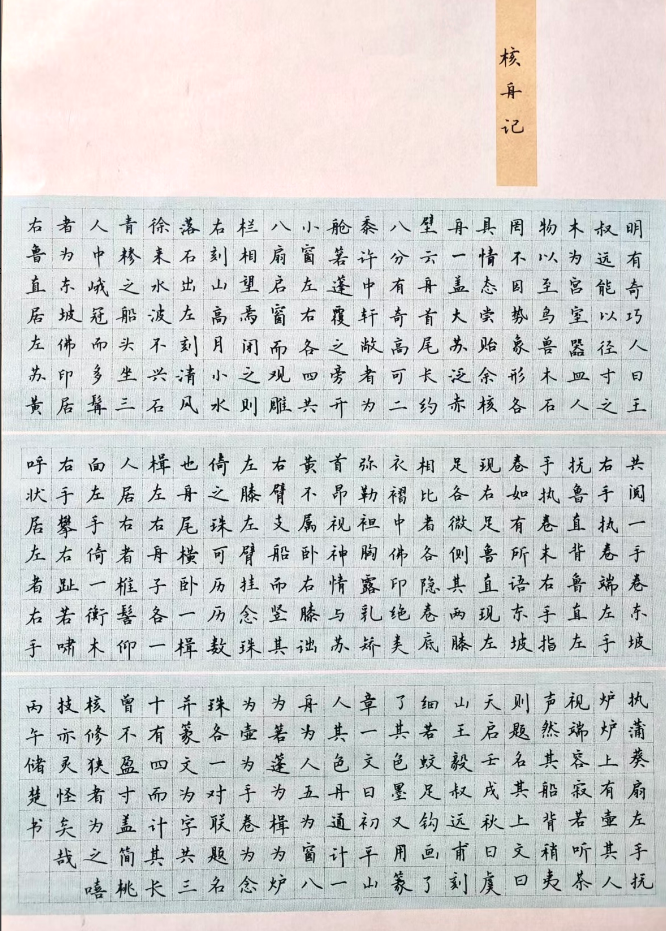 核舟记
明有奇巧人曰王
叔远能以径寸之
木为宫室器皿人
物以至鸟兽木石
罔不因势象形各
具情态尝贻余核
舟一盖大苏泛赤
壁云舟首尾长约
八分有奇高可二
黍许中轩敞者为
舱箬蓬覆之旁开
小窗左右各四共
八扇启窗而观雕
栏相望焉闭之则
右刻山高月小水
落石出左刻清风
徐来水波不兴石
青糁之船头坐三
人中峨冠而多髯
者为东坡佛印居
右鲁直居左苏黄
共阅一手卷东坡
右手执卷端左手
抚鲁直背鲁直左
手执卷末右手指
卷如有所语东坡
现右足鲁直现左
足各微侧其两膝
相比者各隐卷底
衣褶中佛印绝类
弥勒袒胸露乳矫
首昂视神情与苏
黄不属卧右膝诎
右臂支船而竖其
左膝左臂挂念珠
倚之珠可历历数
也舟尾横卧一楫
楫左右舟子各一
人居右者椎髻仰
面左手倚一衡木
右手攀右趾若啸
呼状居左者右手
执蒲葵扇左手抚
炉炉上有壶其人
视端容寂若听茶
声然其船背稍夷
则题名其上文曰
天启壬戌秋日虞
山王毅叔远甫刻
细若蚊足钩画了
了其色墨又用篆
章一文曰初平山
人其色丹通计一
舟为人五为窗八
为箬蓬为楫为炉
为壶为手卷为念
珠各一对联题名
并篆文为字共三
十有四而计其长
曾不盈寸盖简桃
核修狭者为之嘻
技亦灵怪矣哉
丙午储楚书